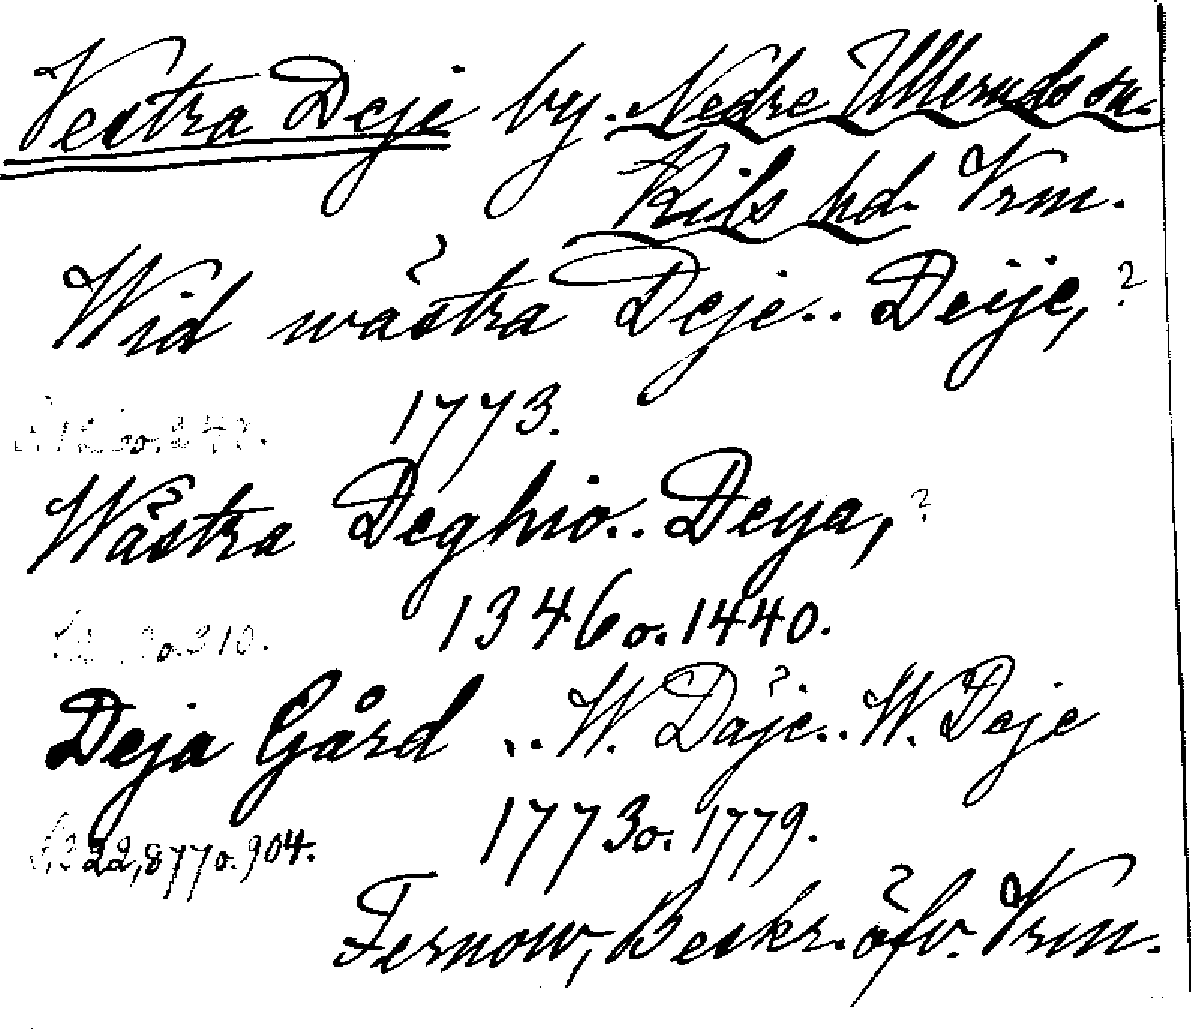 Vestra Deje by. Nedre Ulleruds sn.
Kils hd. Vrm.
Wid wästra Deje.. Deije, ?
1773.
Wästra Deghio.. Deya, ?
1346 o. 1440.
o. 310.
Deja Gård .. W. Däje.. W. Deje
1773 o. 1779.
S. 322, 877 o. 904.
Fernow, Beskr. öfv. Vrm.